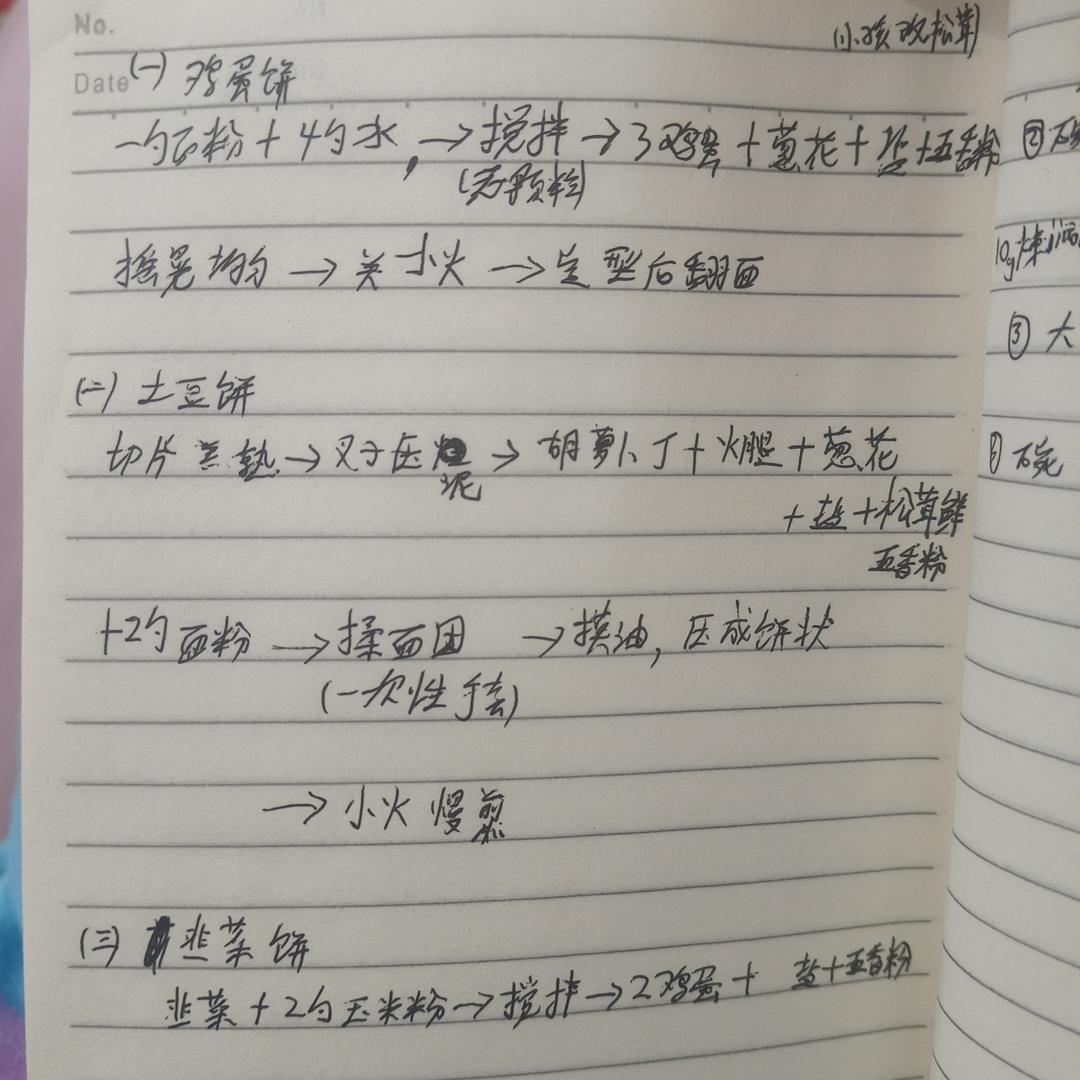 No.
(小孩改松茸)
Date (一) 鸡蛋饼
一勺面粉+4勺水, →搅拌→3鸡蛋+葱花+盐+五香粉
(无颗粒)
摇晃均匀→关小火→定型后翻面
(二) 土豆饼
切片煮熟→叉子压泥→胡萝卜丁+火腿+葱花
+盐+松茸鲜
五香粉
+2勺面粉→揉面团→摸油,压成饼状
(一次性手套)
→小火慢煎
(三) 韭菜饼
韭菜+2勺玉米粉→搅拌→2鸡蛋+ 盐+五香粉
②碗
10g
③大
碗